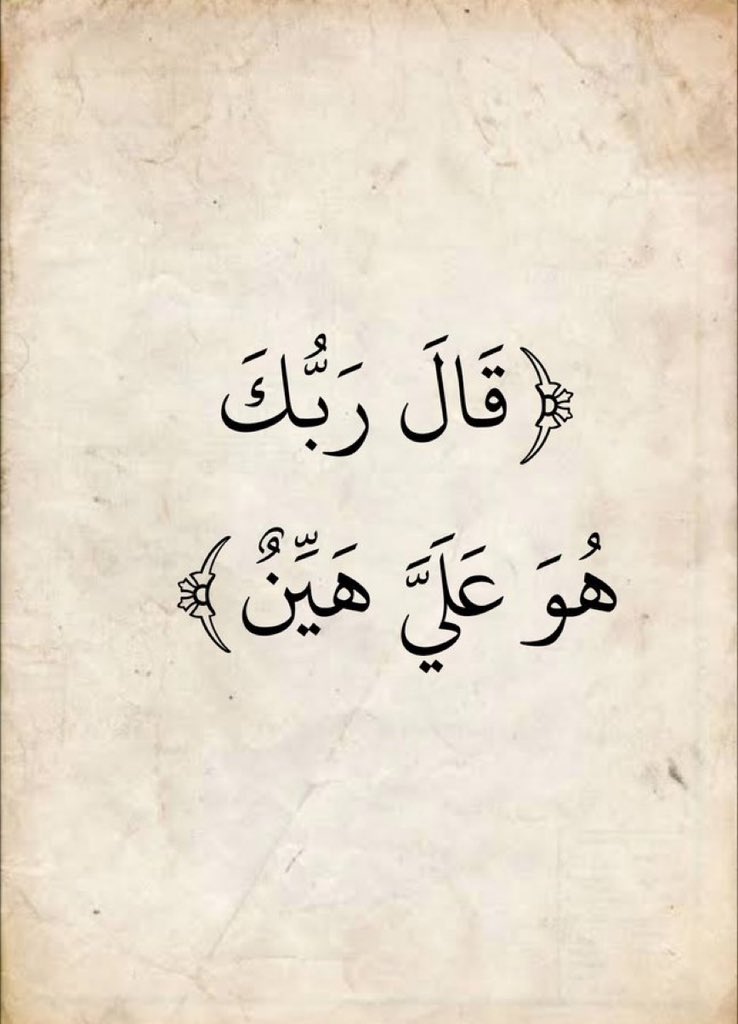 ﴿قَالَ رَبُّكَ
هُوَ عَلَيَّ هَيِّنٌ﴾